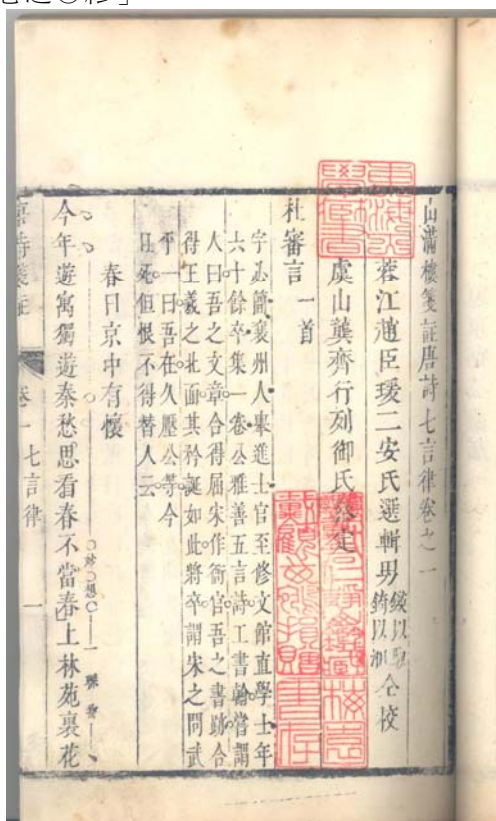 山滿樓箋註唐詩七言律卷之一
蓉江趙臣瑗二安氏選輯男
仝校
虞山龔齊行列御氏
定
杜審言一首
字必簡襄州人舉進士官至修文館直學士年
六十餘卒集一卷公雅善五言詩工書翰嘗謂
人曰吾之文章合得屈宋作衙官吾之書跡合
得王羲之北面其矜誕如此將卒謂宋之問武
平一曰吾在久壓公等今
且死但恨不得替人云
春日京中有懷
今年遊寓獨遊秦愁思看春不當春上林苑裏花
唐詩箋註
卷一
七言律
一